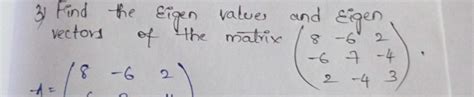 3) Find the Eigen values and Eigen
vectors of the matrix ( 8 -6 2
-6 7 -4
2 -4 3 ) .
A = ( 8 -6 2 )